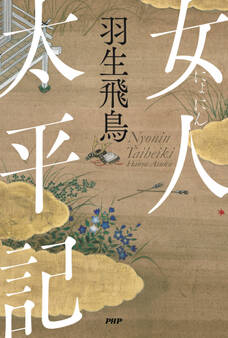 女人
にょにん
太平記
羽生飛鳥
Nyonin
Taiheiki
Hanyu Asuka
PHP